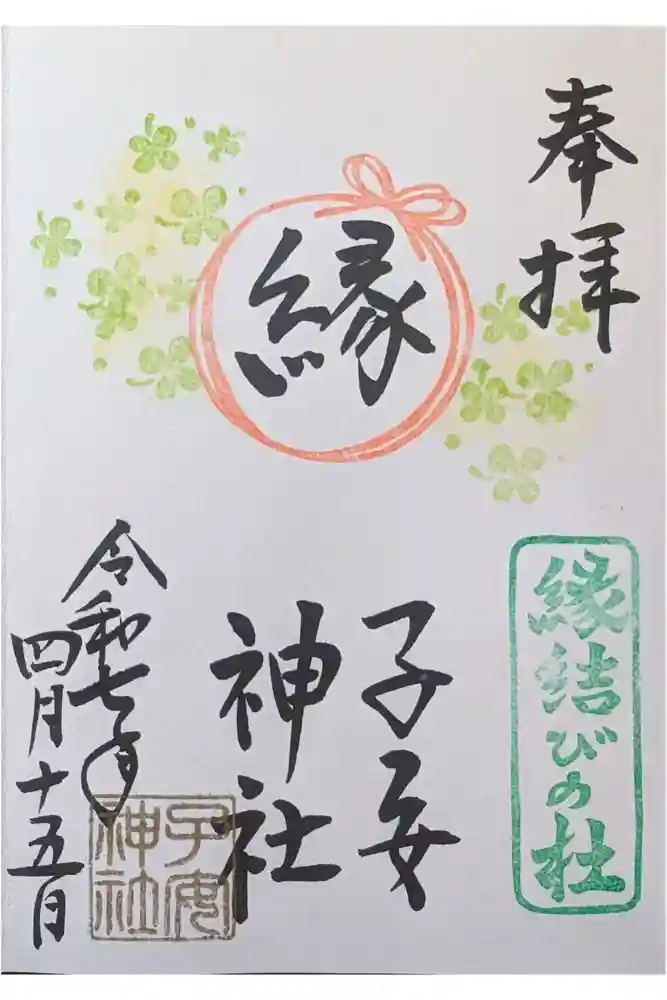 奉拝
縁
縁結びの杜
子安
神社
子安
神社
令和七年
四月十五日